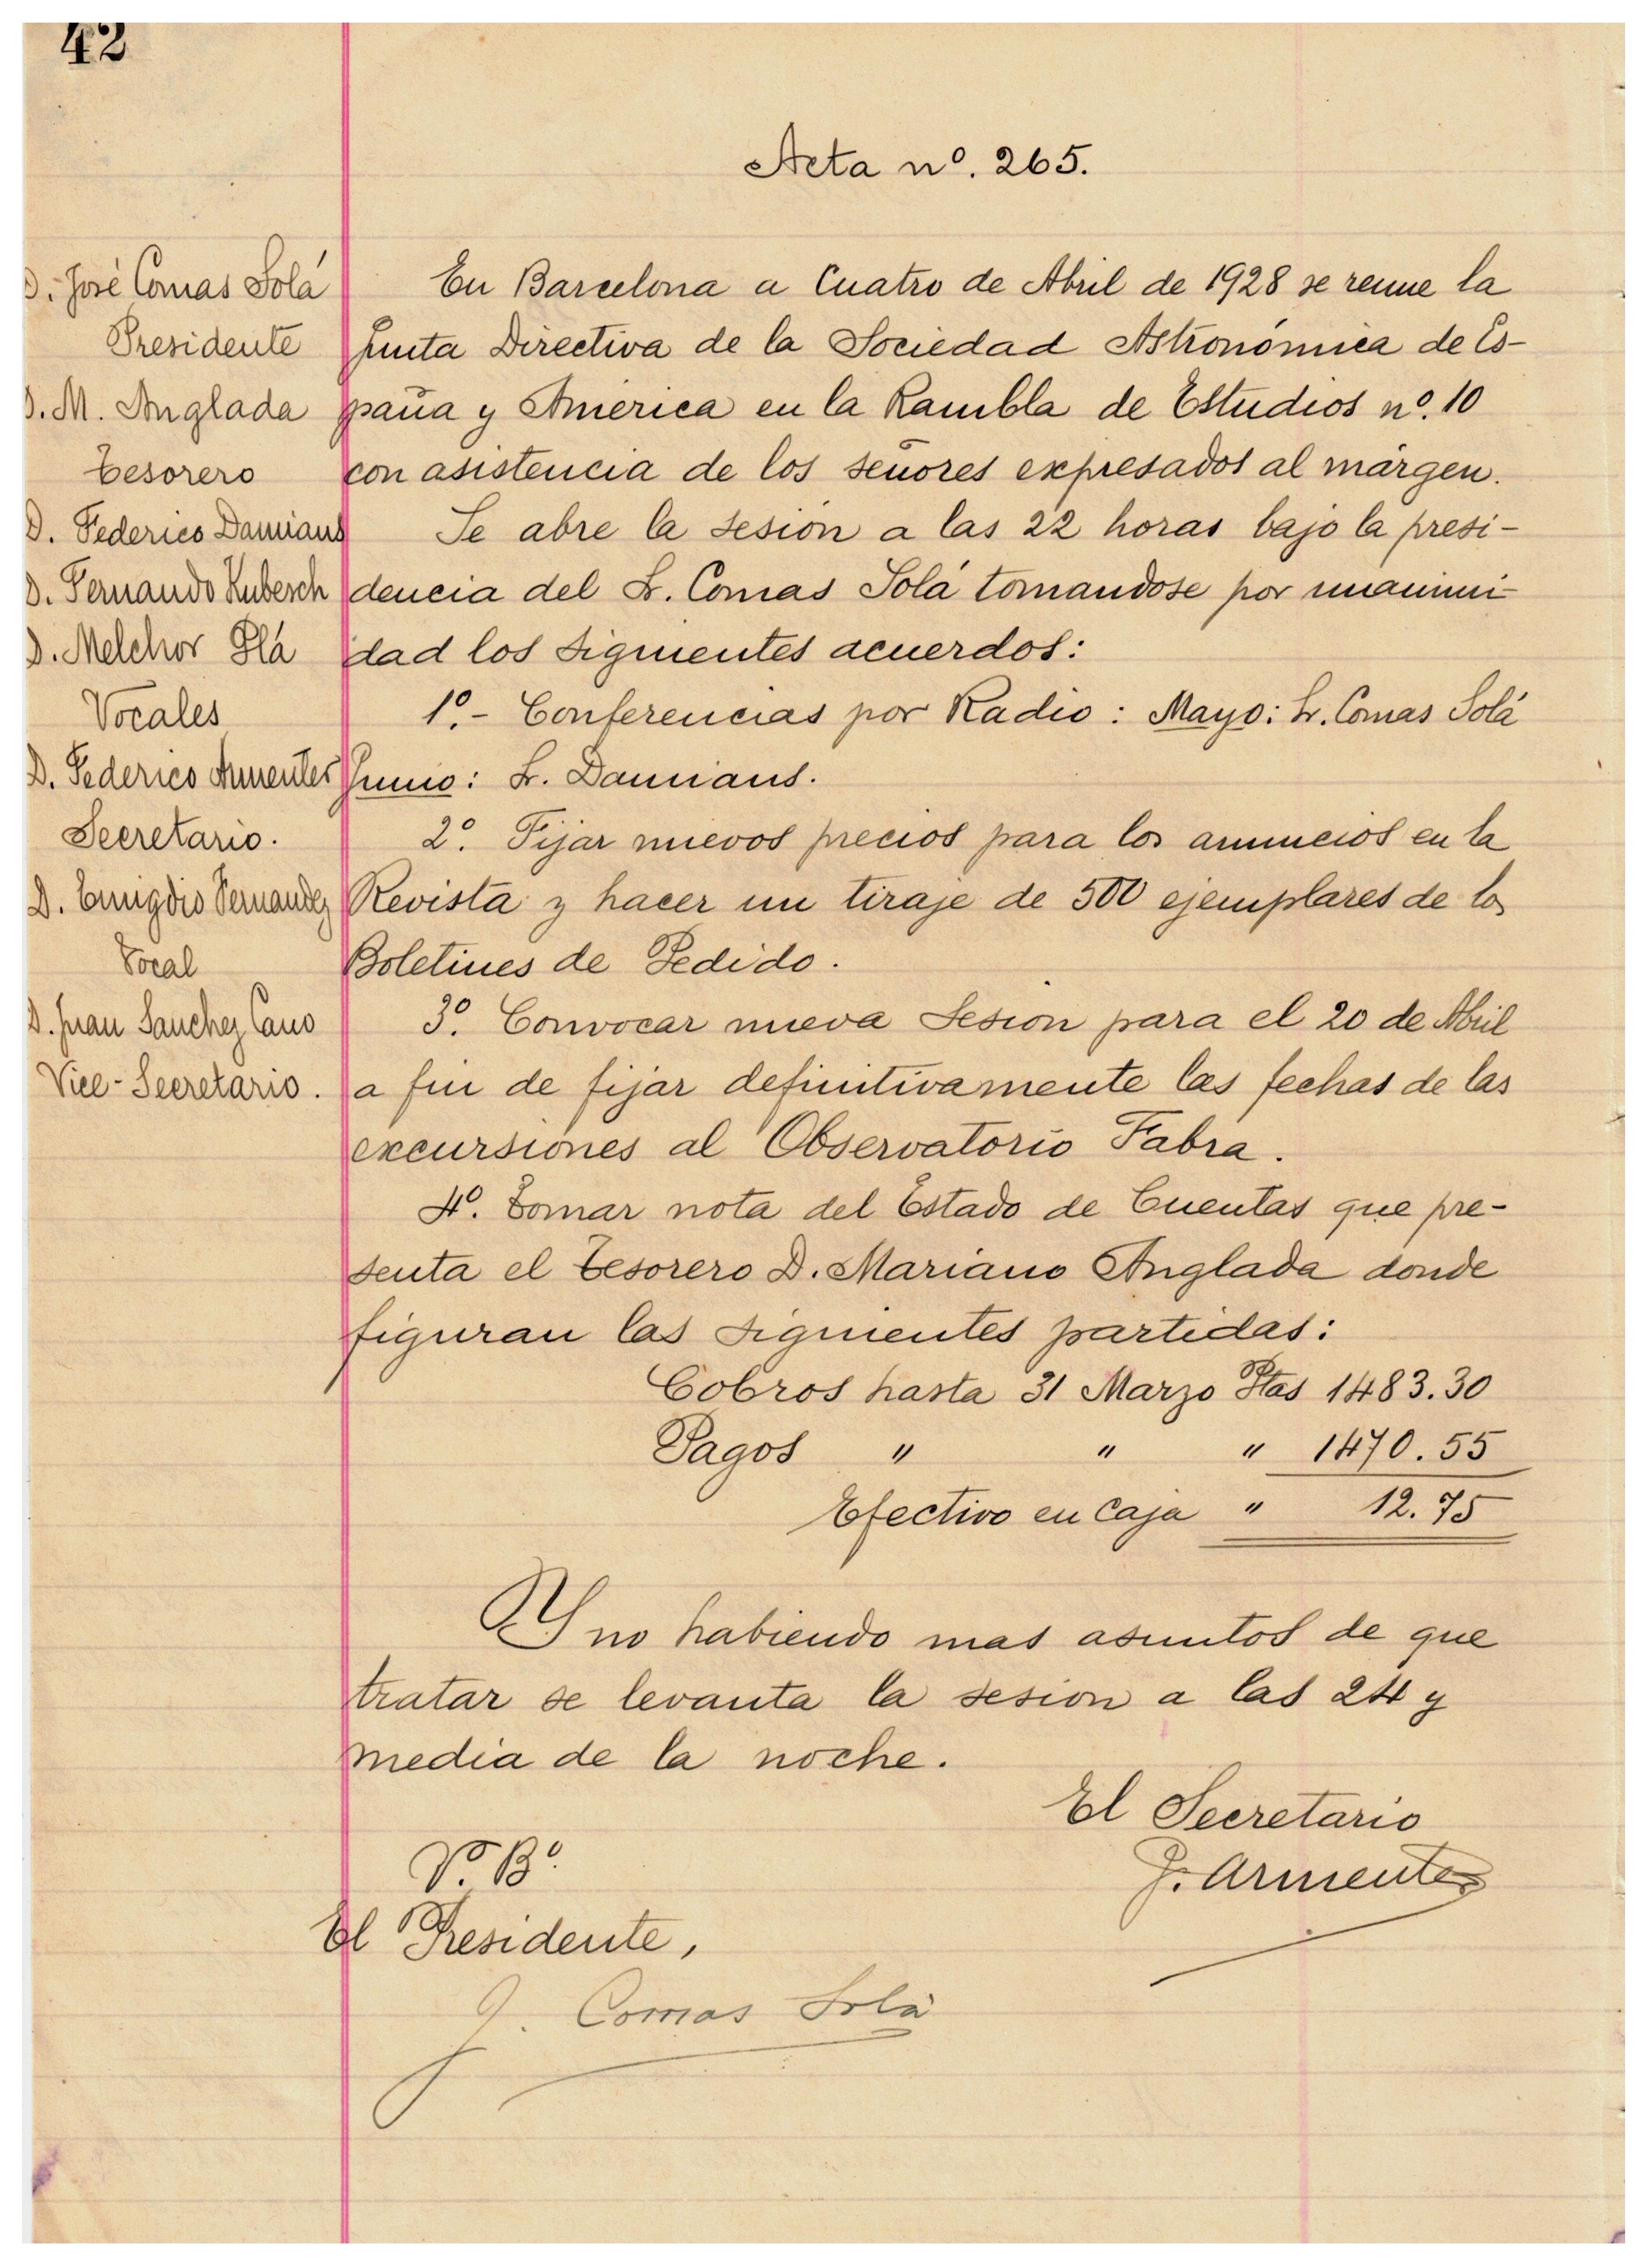 42
Acta nº. 265.
D. José Comas Solá
Presidente
D. M. Anglada
Tesorero
D. Federico Damians
D. Fernando Kubesch
D. Melchor Plá
Vocales
D. Federico Armenter
Secretario.
D. Emigdio Fernandez
Vocal
D. Juan Sanchez Cano
Vice-Secretario.
En Barcelona a Cuatro de Abril de 1928 se reune la
Junta Directiva de la Sociedad Astronómica de Es-
paña y America en la Rambla de Estudios nº. 10
con asistencia de los señores expresados al márgen.
Se abre la sesion a las 22 horas bajo la presi-
dencia del Sr. Comas Solá tomandose por unanimi-
dad los siguientes acuerdos:
1º.- Conferencias por Radio: Mayo: Sr. Comas Solá
Junio: Sr. Damians.
2º. Fijar nuevos precios para los anuncios en la
Revista y hacer un tiraje de 500 ejemplares de los
Boletines de Pedido.
3º. Convocar nueva Sesion para el 20 de Abril
a fin de fijar definitivamente las fechas de las
excursiones al Observatorio Fabra.
4º. Tomar nota del Estado de Cuentas que pre-
senta el Tesorero D. Mariano Anglada donde
figuran las siguientes partidas:
Cobros hasta 31 Marzo Ptas 1483.30
Pagos " " " 1470.55
Efectivo en Caja " 12.75
Y no habiendo mas asuntos de que
tratar se levanta la sesion a las 24 y
media de la noche.
El Secretario
F. Armenter
Vº. Bº.
El Presidente,
J. Comas Solá